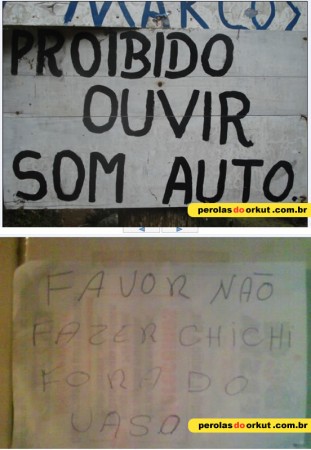 MARCOS
PROIBIDO
OUVIR
SOM AUTO.
perolasdoorkut.com.br
FAVOR NÃO
FAZER CHICHI
FORA DO
VASO
perolasdoorkut.com.br